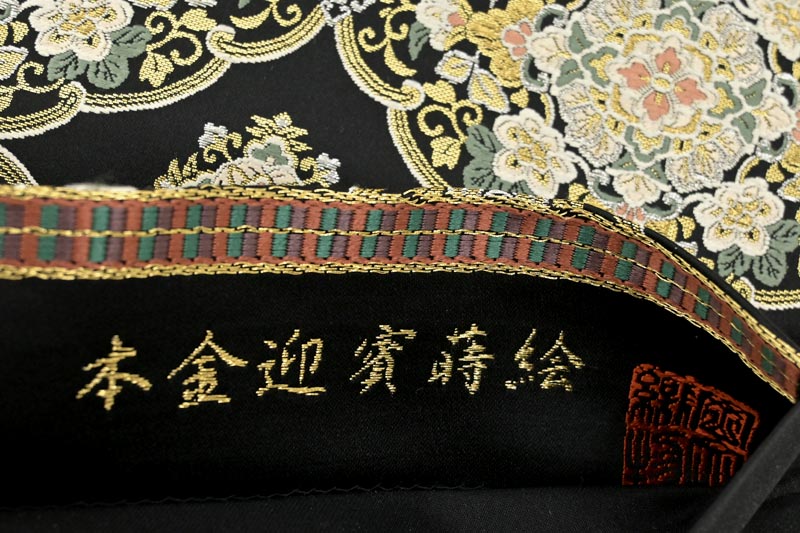 本金迎賓蒔絵